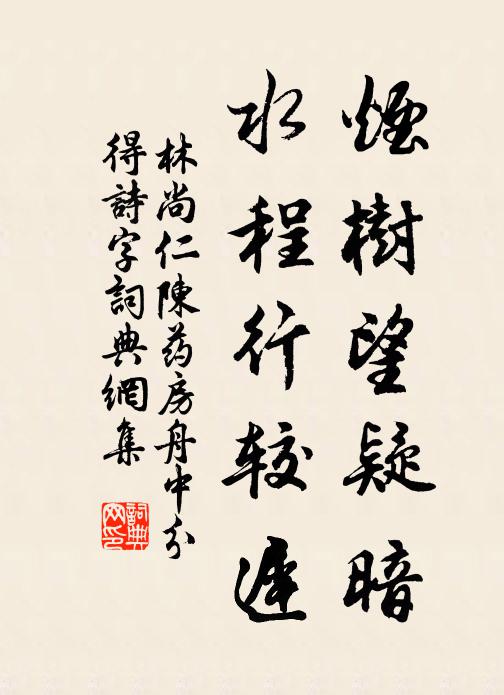 煙樹望疑暗
水程行较遲
林尚仁陳药房舟中分
得詩字詞典網集
詞典
网印